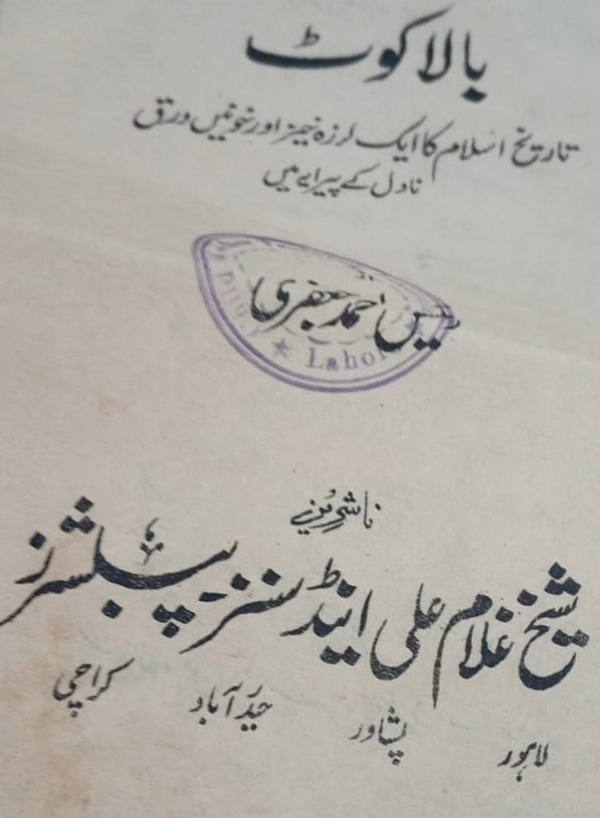 بالاکوٹ
تاریخ اسلام کا ایک لرزہ خیز اور خونیں ورق
ناول کے پیرایے میں
رئیس احمد جعفری
Lahore
ناشرین
شیخ غلام علی اینڈ سنز، پبلشرز
لاہور پشاور حیدرآباد کراچی